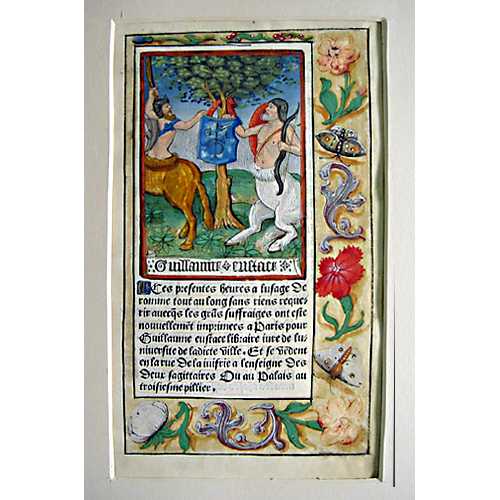 Guillaume eustace
Ces presentes heures a lusage De
romme tout au long sans riens reque
rir auecqs les grãs suffraiges ont este
nouuellemẽt imprimees a Paris pour
Guillaume eustace libraire iure de lu
niuersite de ladicte ville. Et se vẽdent
en la rue De la iuifrie a lenseigne Des
Deux sagittaires Ou au Palais au
troisiesme pillier.